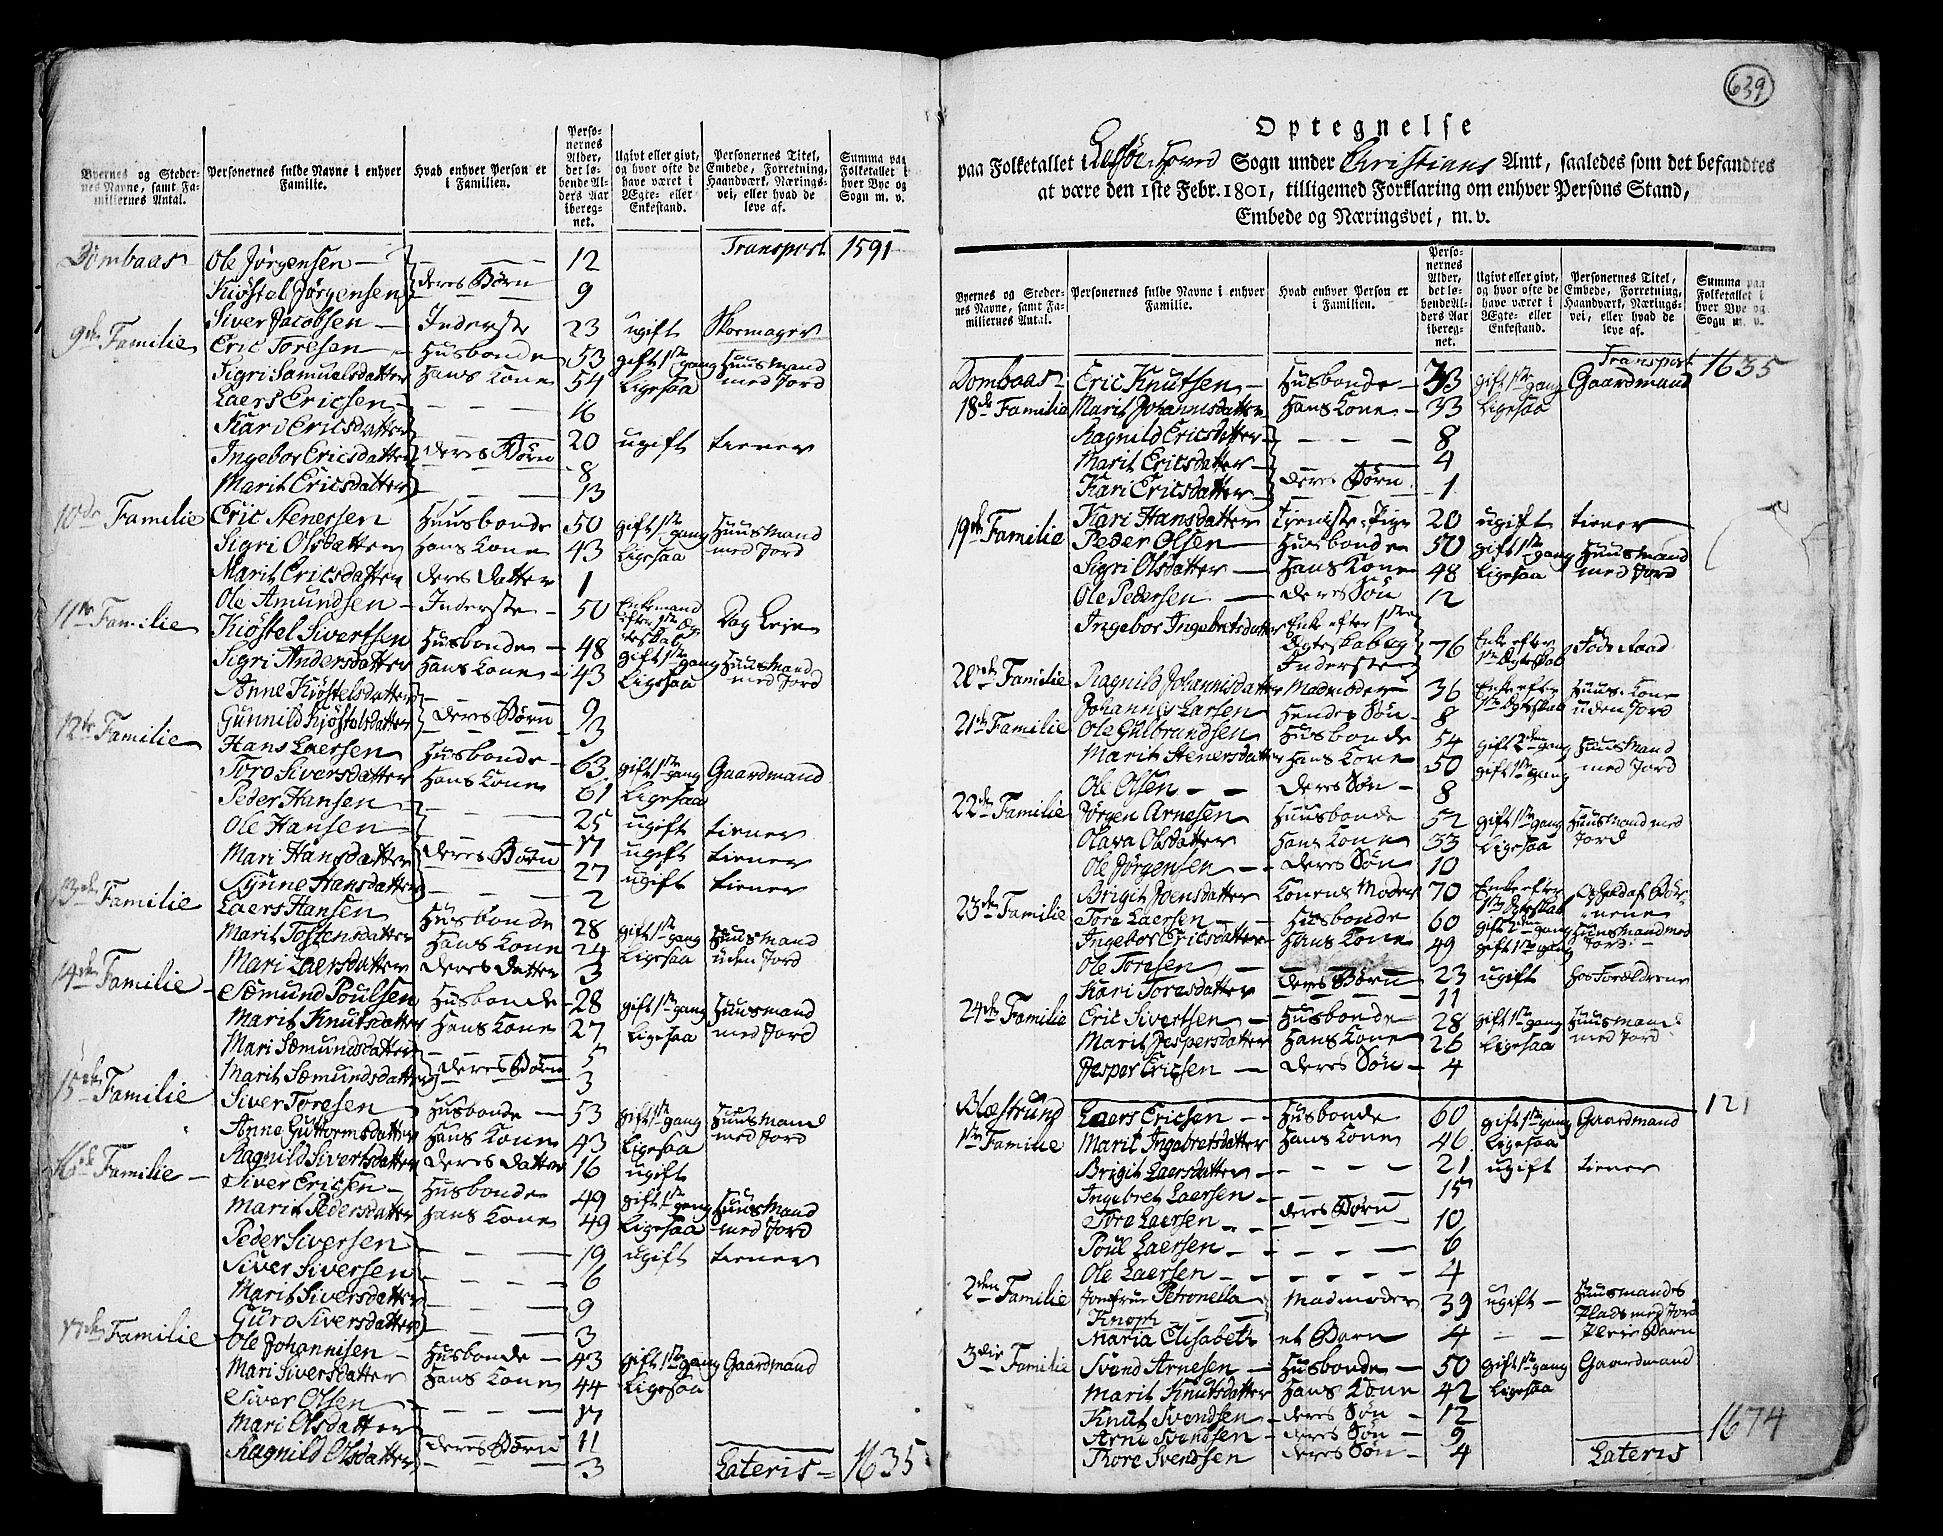 Byernes og Stedernes Navne, samt Familiernes Antal. | Personernes fulde Navne i enhver Familie. | Hvad enhver Person er i Familien. | Personernes Alder, det løbende Alders Aar iberegnet. | Ugivt eller givt, og hvor ofte de have været i Ægte- eller Enkestand. | Personernes Titel, Embede, Forretning, Haandværk, Næringsvei, eller hvad de leve af. | Summa paa Folketallet i hver Bye og Sogn m. v.
Transport 1591
Dombaas Ole Jørgensen 12
Kiøstel Jørgensen deres Børn 9
Siver Jacobsen Inderste 23 ugift Skoemager
9de Familie Eric Toresen Husbonde 53 gift 1ste gang Huusmand
Sigri Samuelsdatter Hans Kone 54 Ligesaa med Jord
Laers Ericsen 16
Kari Ericsdatter 20 ugift tiener
Ingebor Ericsdatter deres Børn 8
Marit Ericsdatter 13
10de Familie Eric Stenersen Huusbonde 50 gift 1ste gang Huusmand
Sigri Olsdatter Hans Kone 43 Ligesaa med Jord
Marit Ericsdatter deres datter 1
Ole Amundsen Inderste 50 Enkemand efter 1ste Ægteskab Dag Leje
11te Familie Kiøstel Sivertsen Husbonde 48 gift 1ste gang Huusmand
Sigri Andersdatter Hans Kone 43 Ligesaa med Jord
Anne Kiøstelsdatter 9
Gunnild Kiøstelsdatter deres Børn 3
12te Familie Hans Laersen Husbonde 63 gift 1ste gang Gaardmand
Toro Siversdatter Hans Kone 61 Ligesaa
Peder Hansen 25 ugift tiener
Ole Hansen 17 ugift tiener
Mari Hansdatter deres Børn 27 ugift tiener
Synne Hansdatter 2
13de Familie Laers Hansen Husbonde 28 gift 1ste gang Huusmand
Marit Tostensdatter Hans Kone 24 Ligesaa uden Jord
Mari Laersdatter deres datter 3
14de Familie Sæmund Poulsen Husbonde 28 gift 1ste gang Huusmand
Marit Knutsdatter Hans Kone 27 Ligesaa med Jord
Mari Sæmundsdatter 5
Marit Sæmundsdatter deres Børn 3
15de Familie Siver Toresen Husbonde 53 gift 1ste gang Huusmand
Anne Guttormsdatter Hans Kone 43 Ligesaa med Jord
Ragnild Sivertsdatter deres datter 16 ugift
16de Familie Siver Ericsen Husbonde 49 gift 1ste gang Huusmand
Marit Pedersdatter Hans Kone 49 Ligesaa med Jord
Peder Siversen 19 ugift tiener
Siver Siversen 6
Marit Siversdatter 9
Guro Siversdatter 3
17de Familie Ole Johannisen Husbonde 43 gift 1ste gang Gaardmand
Mari Siversdatter Hans Kone 44 Ligesaa
Siver Olsen 17
Mari Olsdatter deres Børn 11
Ragnild Olsdatter 3
Lateris 1635
639
Optegnelse
paa Folketallet i Lessøe Hoved Sogn under Christians Amt, saaledes som det befandtes
at være den 1ste Febr. 1801, tilligemed Forklaring om enhver Persons Stand,
Embede og Næringsvei, m. v.
Byernes og Stedernes Navne, samt Familiernes Antal. | Personernes fulde Navne i enhver Familie. | Hvad enhver Person er i Familien. | Personernes Alder, det løbende Alders Aar iberegnet. | Ugivt eller givt, og hvor ofte de have været i Ægte- eller Enkestand. | Personernes Titel, Embede, Forretning, Haandværk, Næringsvei, eller hvad de leve af. | Summa paa Folketallet i hver Bye og Sogn m. v.
Transport 1635
Dombaas Eric Knutsen Husbonde 33 gift 1ste gang Gaardmand
18de Familie Marit Johannisdatter Hans Kone 33 Ligesaa
Ragnild Ericsdatter 8
Marit Ericsdatter 4
Kari Ericsdatter deres Børn 1
Kari Hansdatter Tjeniste Pige 20 ugift tiener
19de Familie Peder Olsen Huusbonde 50 gift 1ste gang Huusmand
Sigri Olsdatter Hans Kone 48 Ligesaa med Jord
Ole Pedersen deres Søn 12
Ingebor Ingebretsdatter Enke efter 1ste Ægteskab og Inderste 76 Enke efter 1ste Ægteskab Føde Raad
20de Familie Ragnild Johannisdatter Madmoder 36 Enke efter 1ste Ægteskab Huus Kone
Johannis Larsen Hendes Søn 8 uden Jord
21de Familie Ole Gulbrandsen Husbonde 54 gift 2den gang Huusmand
Marit Stenersdatter Hans Kone 50 gift 1ste gang med Jord
Ole Olsen deres Søn 8
22de Familie Jørgen Arnesen Huusbonde 52 gift 1ste gang Huusmand med
Olava Olsdatter Hans Kone 33 Ligesaa Jord
Ole Jørgensen deres Søn 10
Brigit Joensdatter Konens Moder 70 Enke efter 1ste Ægteskab
23de Familie Tore Laersen Husbonde 60 gift 2den gang Huusmand med
Ingebor Ericsdatter Hans Kone 49 gift 1ste gang Jord
Ole Toresen 23 ugift hos Forældrene
Kari Toresdatter deres Børn 11
24de Familie Eric Sivertsen Husbonde 28 gift 1ste gang Huusmand
Marit Jespersdatter Hans Kone 26 Ligesaa med Jord
Jesper Ericsen deres Søn 4
121
Blæstrund Laers Ericsen Husbonde 60 gift 1ste gang Gaardmand
1ste Familie Marit Ingebretsdatter Hans Kone 46 Ligesaa
Brigit Laersdatter 21 ugift tiener
Ingebret Laersen 15
Tore Laersen deres Børn 10
Poul Laersen 6
Ole Laersen 4
2den Familie Jomfrue Petronella Knoph Madmoder 39 ugift Huusmandes Plads med Jord
Maria Elisabeth et Barn 4 Pleie Barn
3die Familie Svend Arnesen Husbonde 50 gift 1ste gang Gaardmand
Marit Knutsdatter Hans Kone 42 Ligesaa
Knut Svendsen deres Søn 12
Arne Svendsen deres Søn 9
Thore Svendsen deres Søn 4
Lateris 1674